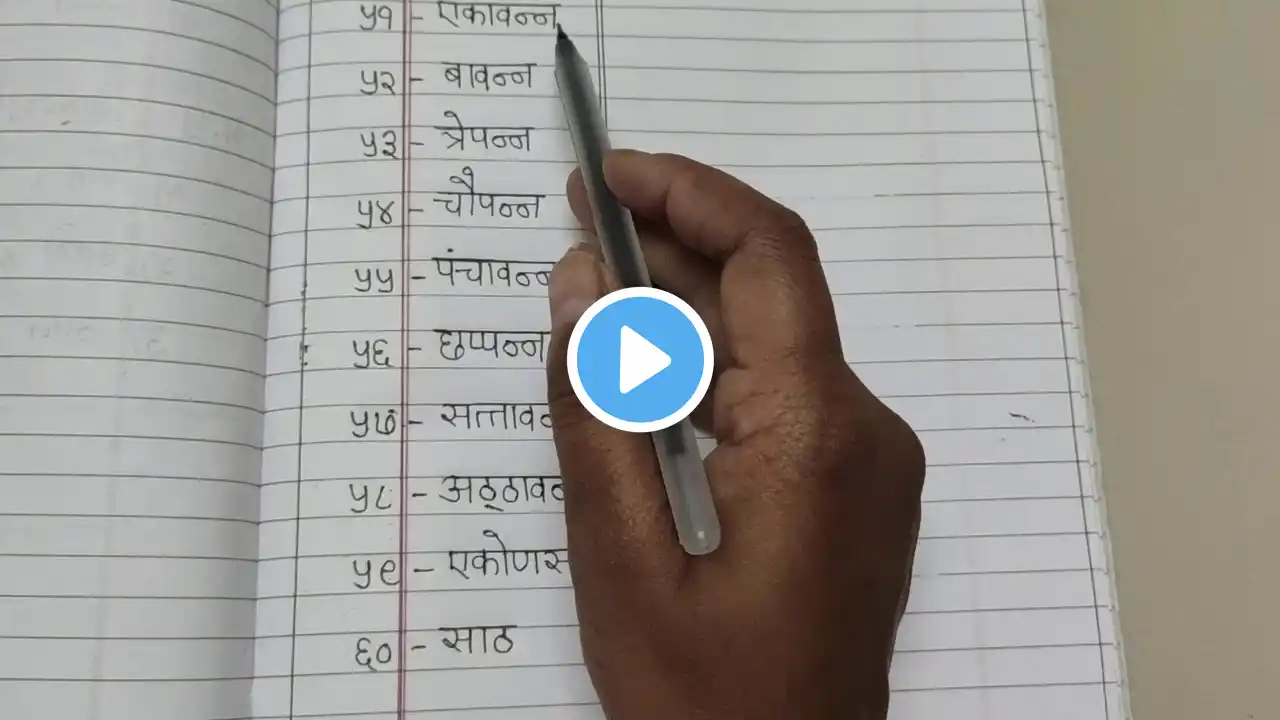 ५१ - एकावन्न
५२ - बावन्न
५३ - त्रेपन्न
५४ - चौपन्न
५५ - पंचावन्न
५६ - छप्पन्न
५७ -
५८ -
५९ -
६० - साठ